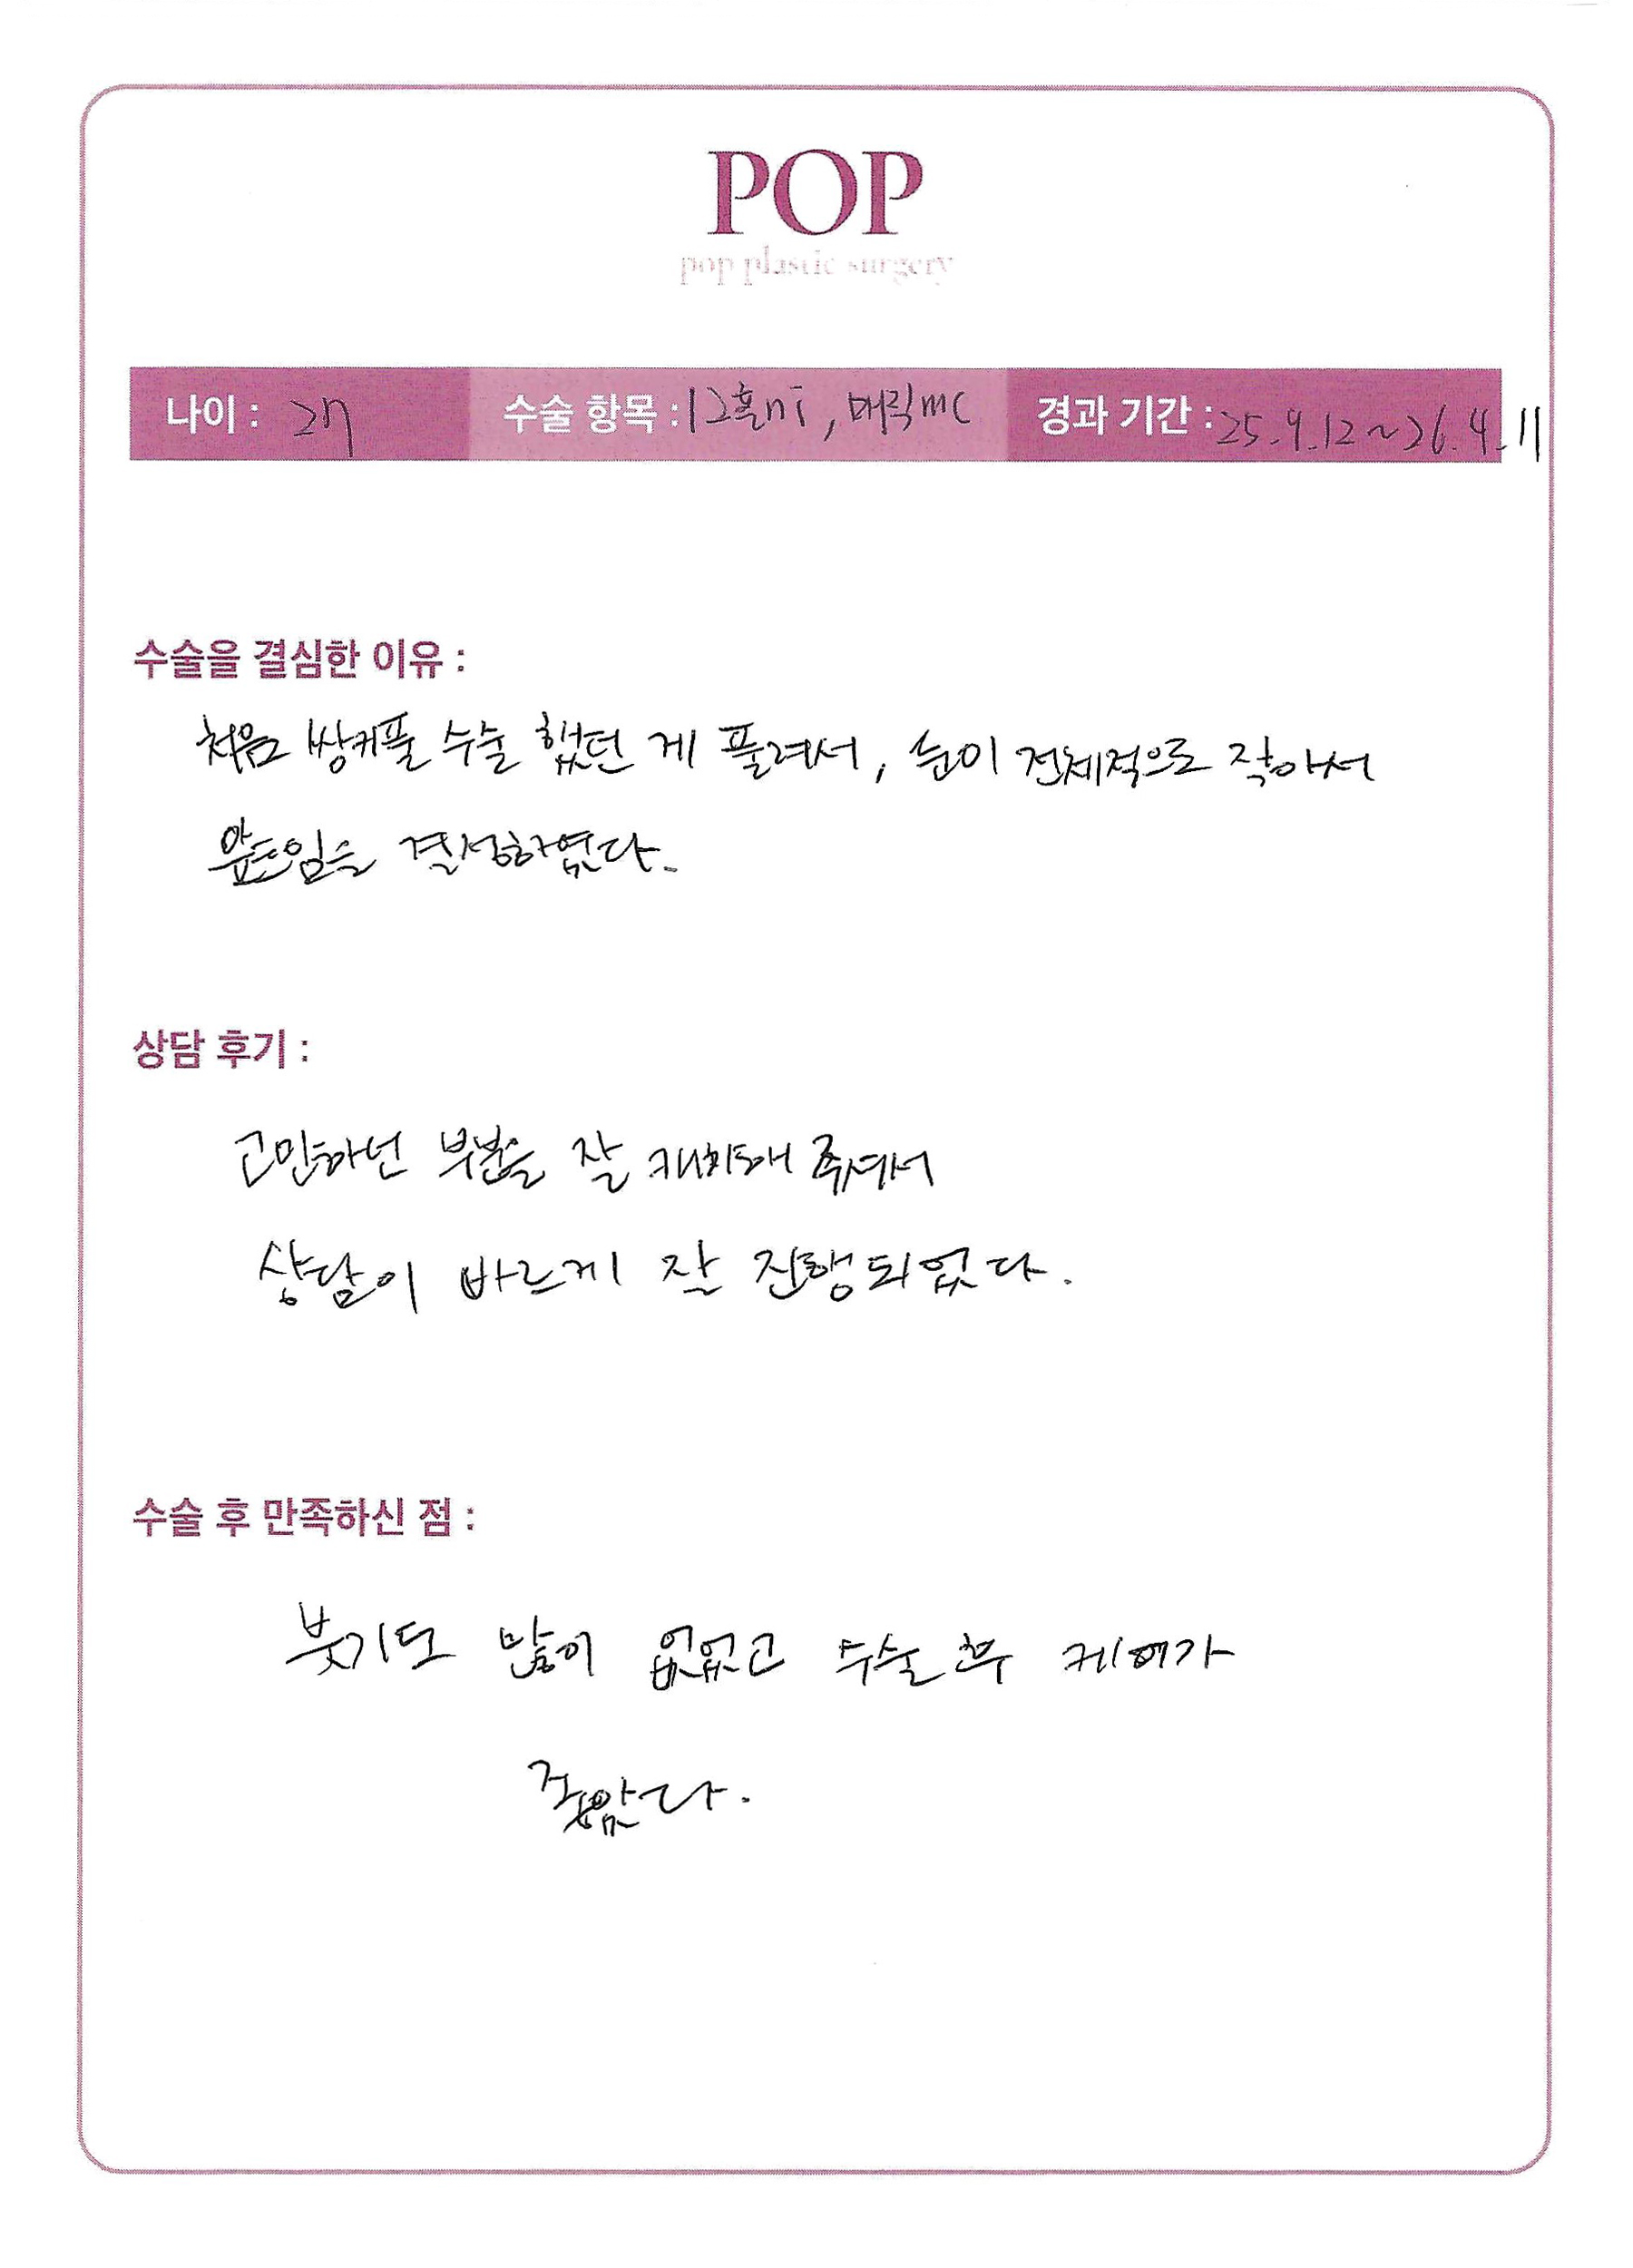 POP
pop plastic surgery
나이 : 27 수술 항목 : 12홀ni, 매직mc 경과 기간 : 25.9.12~26.4.11
수술을 결심한 이유 :
처음 쌍커풀 수술 했던 게 풀려서, 눈이 전체적으로 작아서
앞트임을 결정하였다.
상담 후기 :
고민하던 부분을 잘 캐치해 주셔서
상담이 바르게 잘 진행되었다.
수술 후 만족하신 점 :
붓기도 많이 없었고 수술 후 케어가
좋았다.